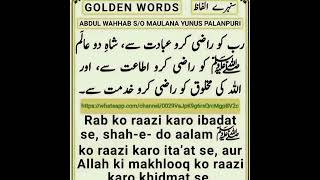 GOLDEN WORDS سنہرے الفاظ
ABDUL WAHHAB S/O MAULANA YUNUS PALANPURI
رب کو راضی کرو عبادت سے، شاہِ دو عالَم
ﷺ کو راضی کرو اطاعت سے، اور
اللہ کی مخلوق کو راضی کرو خدمت سے۔
Rab ko raazi karo ibadat
se, shah-e- do aalam ﷺ
ko raazi karo ita'at se, aur
Allah ki makhlooq ko raazi
karo khidmat se